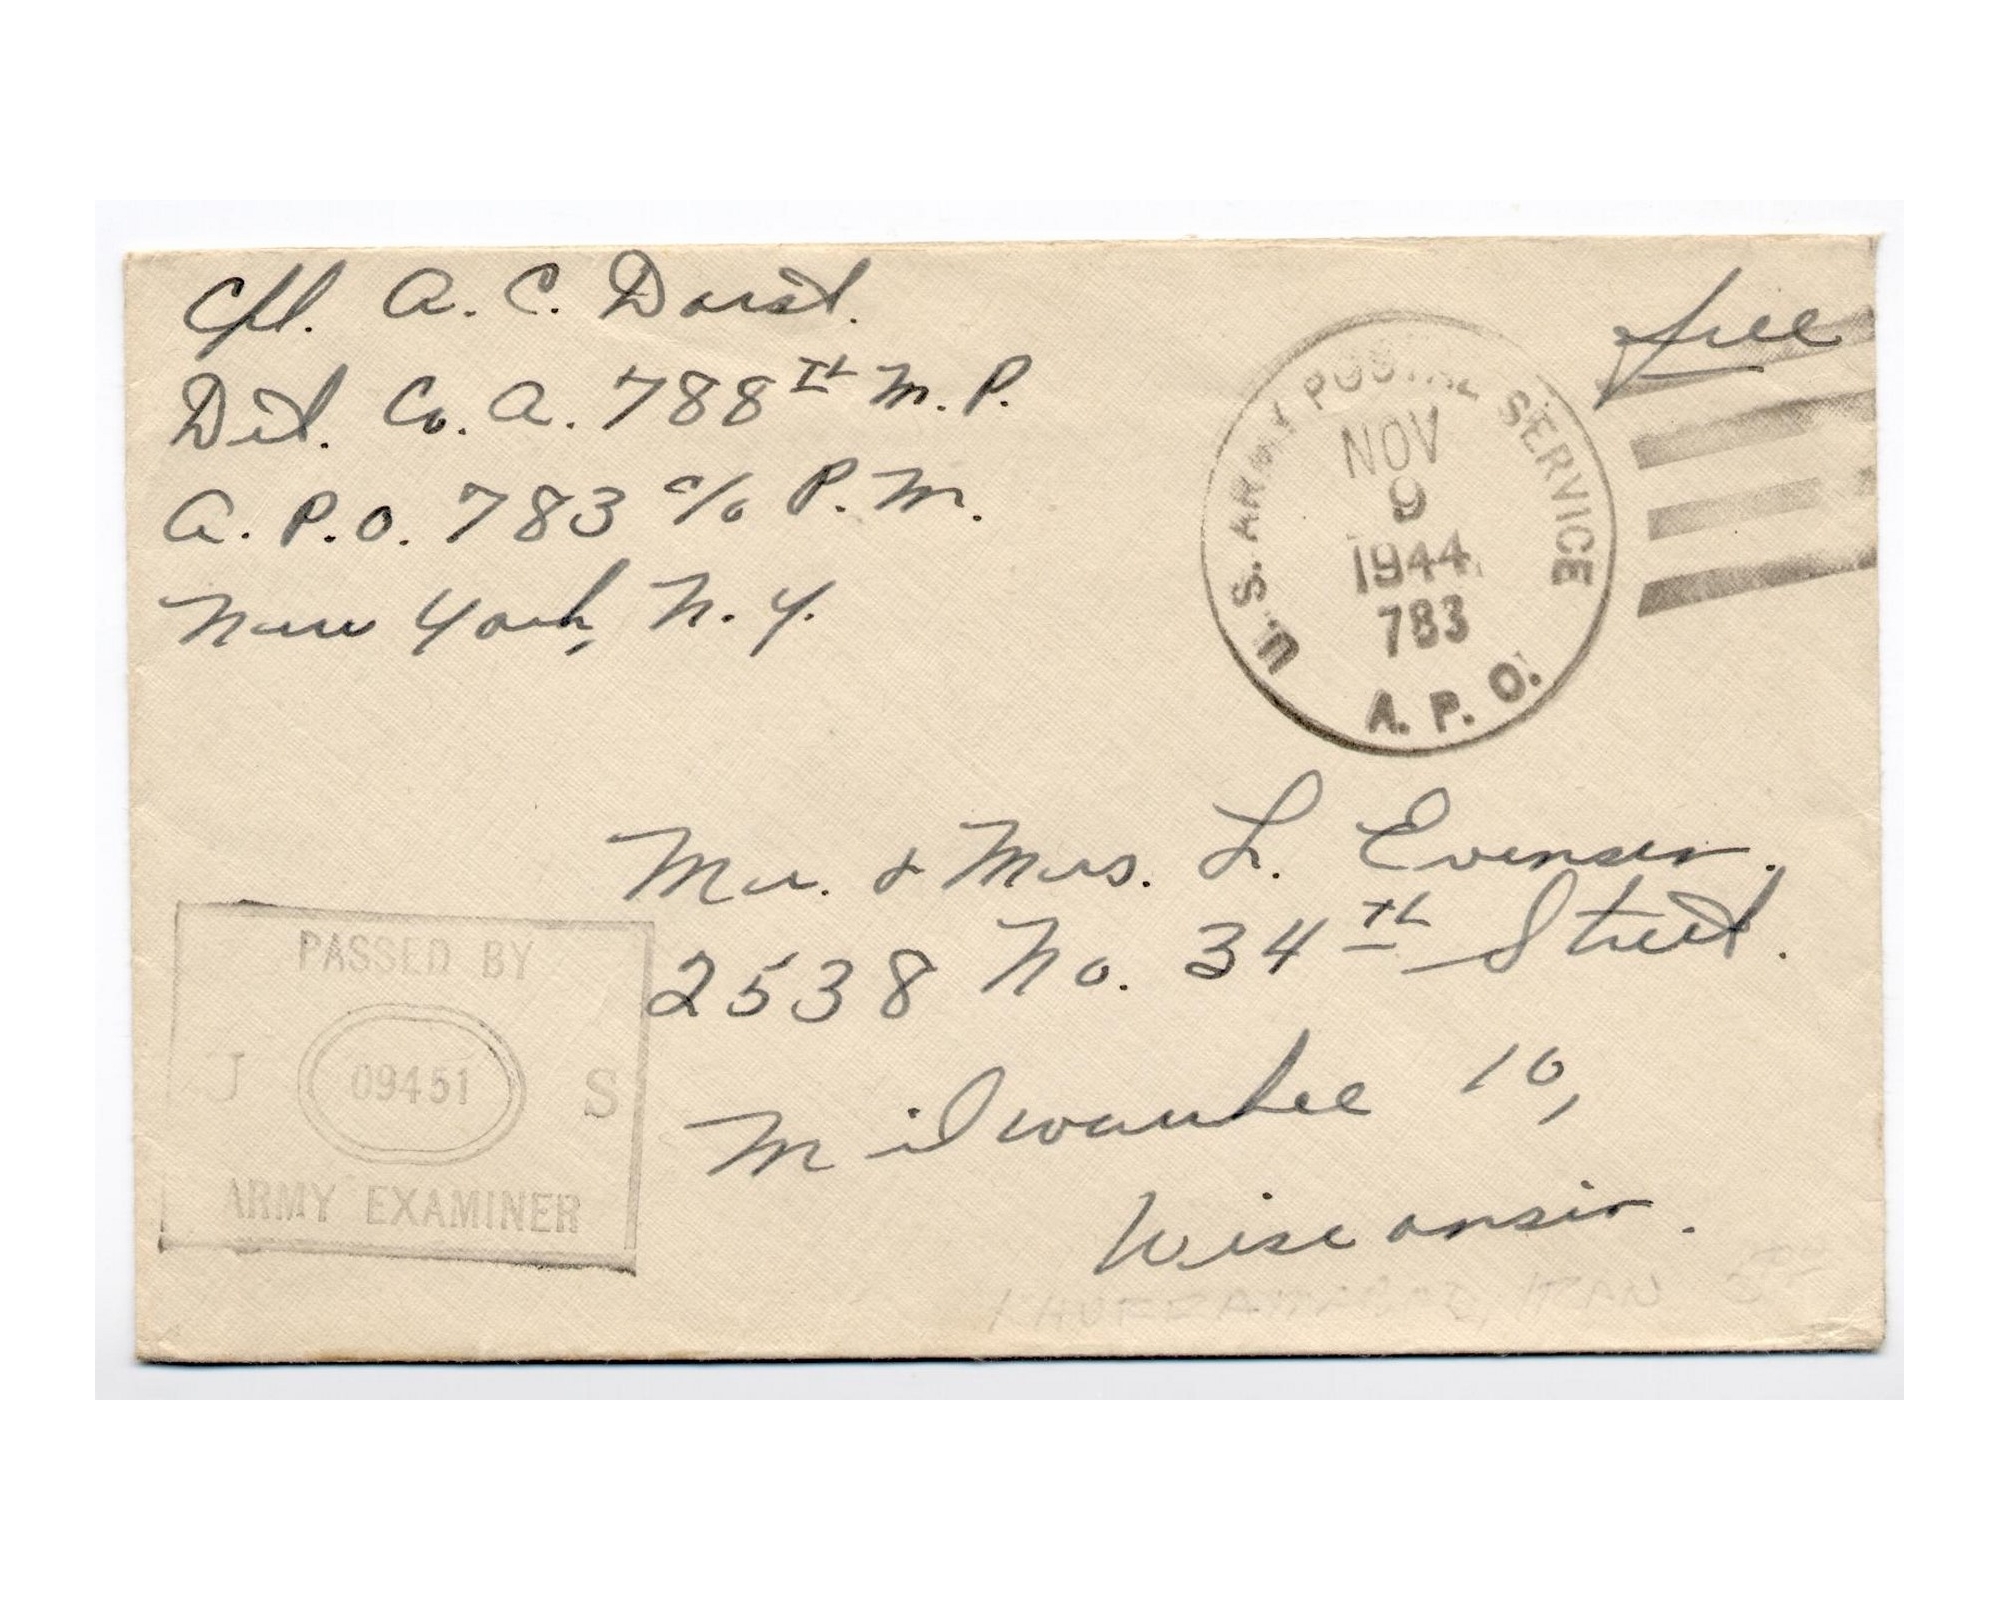 Cpl. A. C. Dorst.
Det. Co. A. 788th M. P.
A. P. O. 783 c/o P. M.
New York, N. Y.
free
U.S. ARMY POSTAL SERVICE
NOV
9
1944
783
A. P. O.
Mr. & Mrs. L. Evensen.
2538 No. 34th Street.
Milwaukee 10,
Wisconsin.
PASSED BY
J 09451 S
ARMY EXAMINER
IRAN